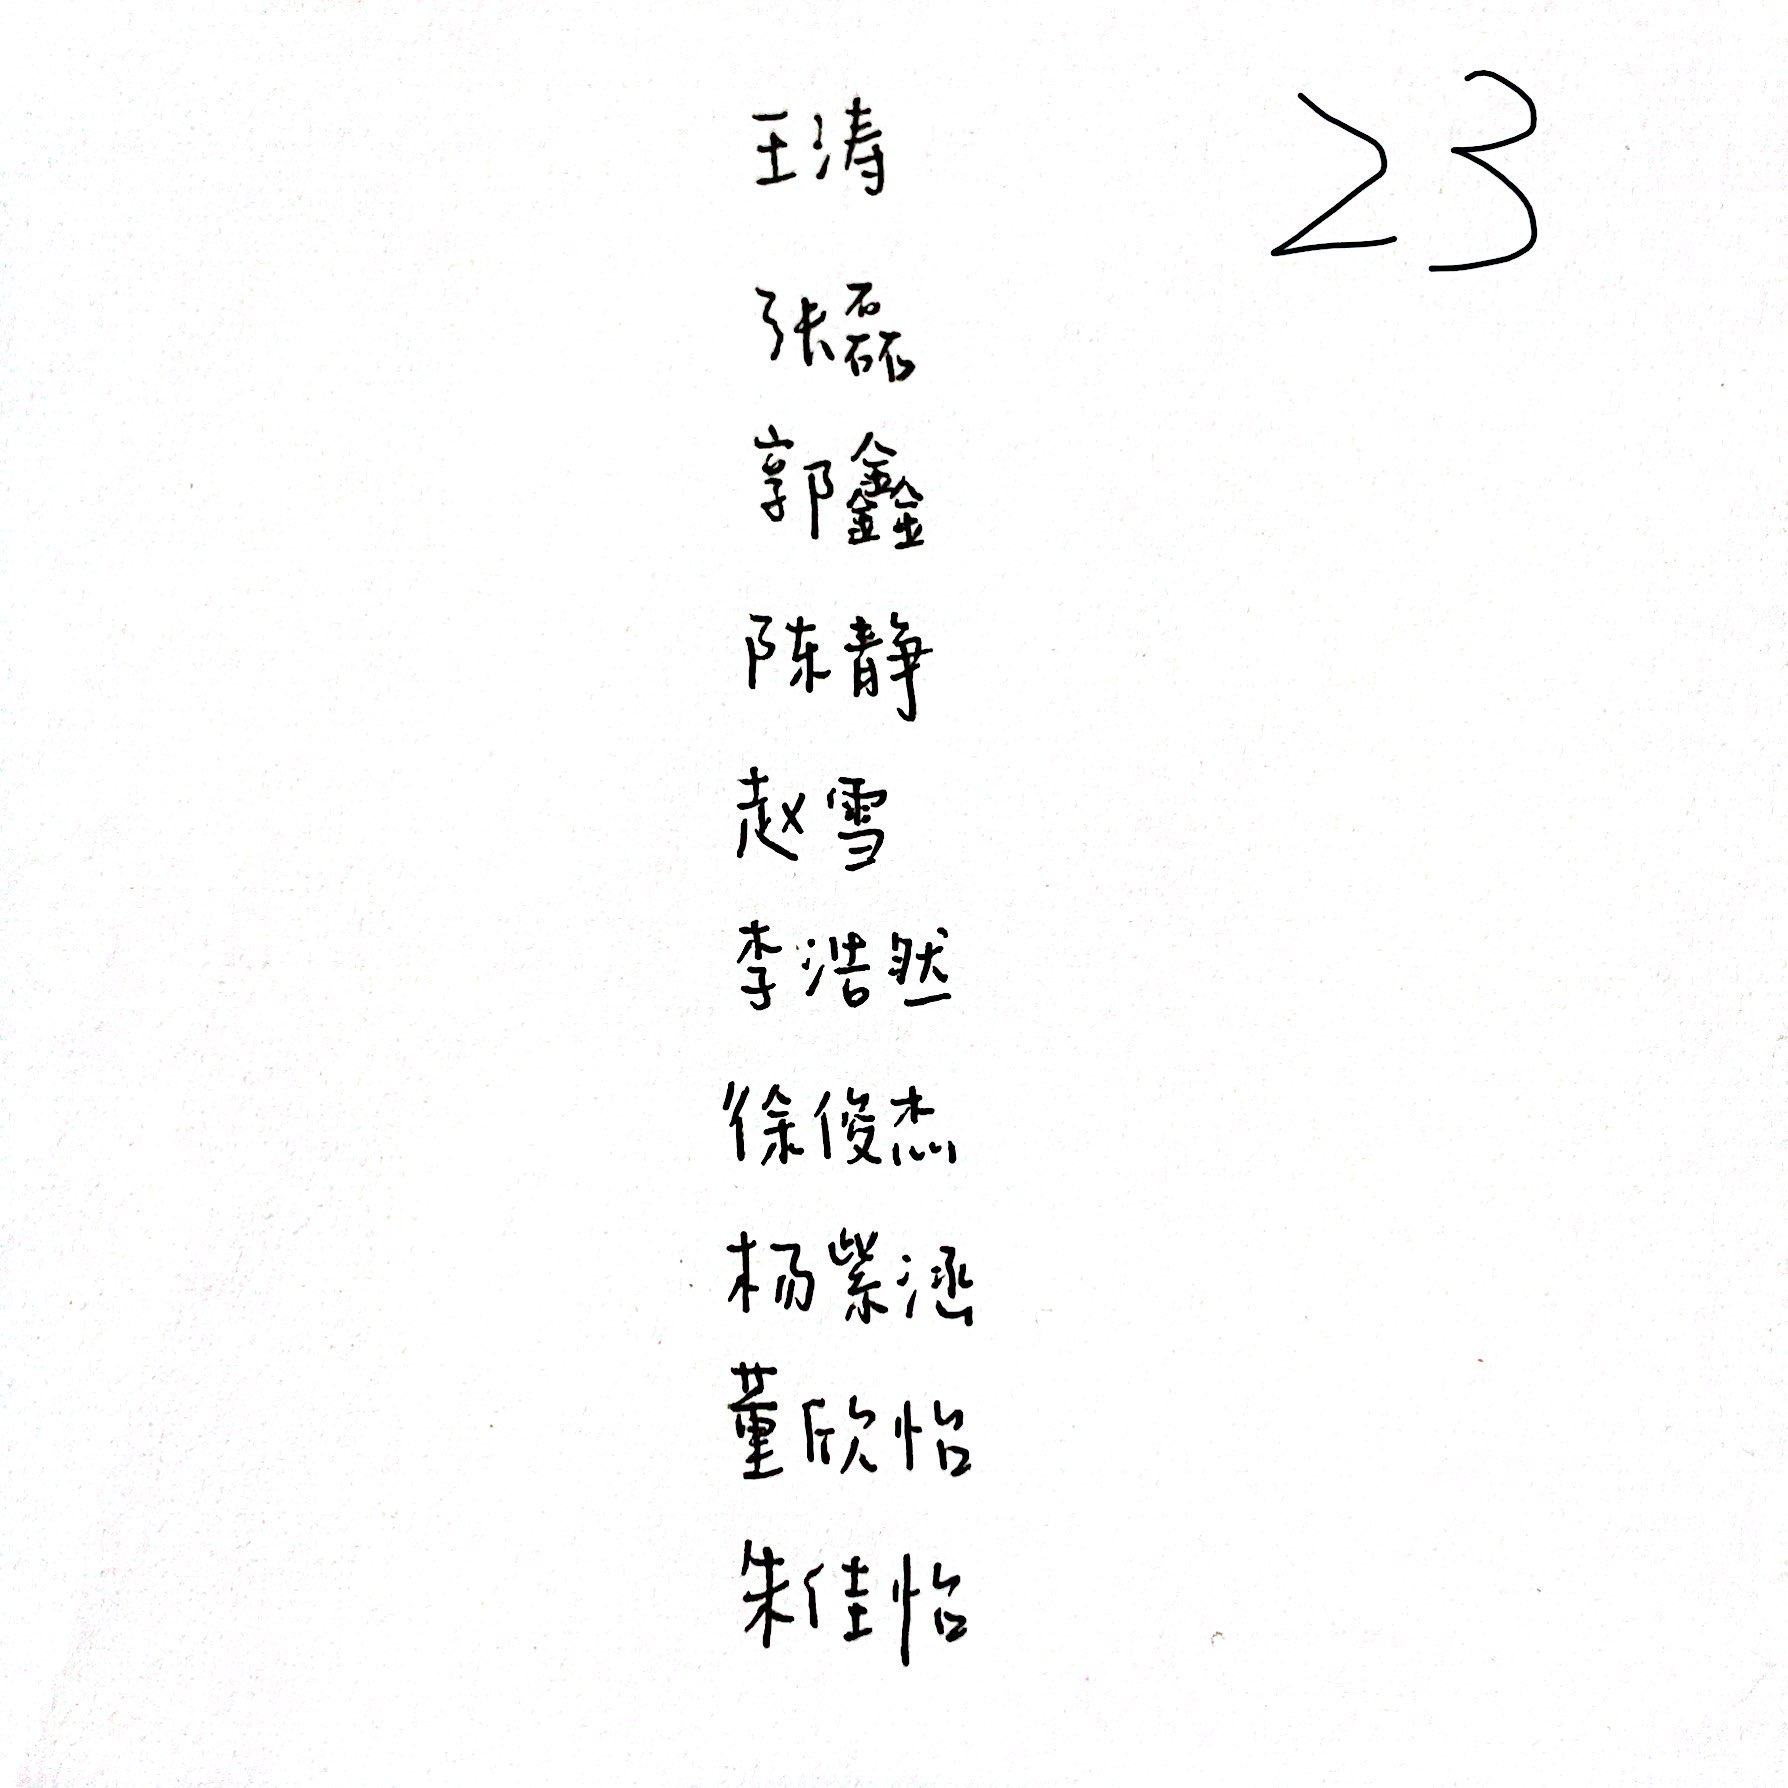 王涛 23
张磊
郭鑫
陈静
赵雪
李浩然
徐俊杰
杨紫涵
董欣怡
朱佳怡